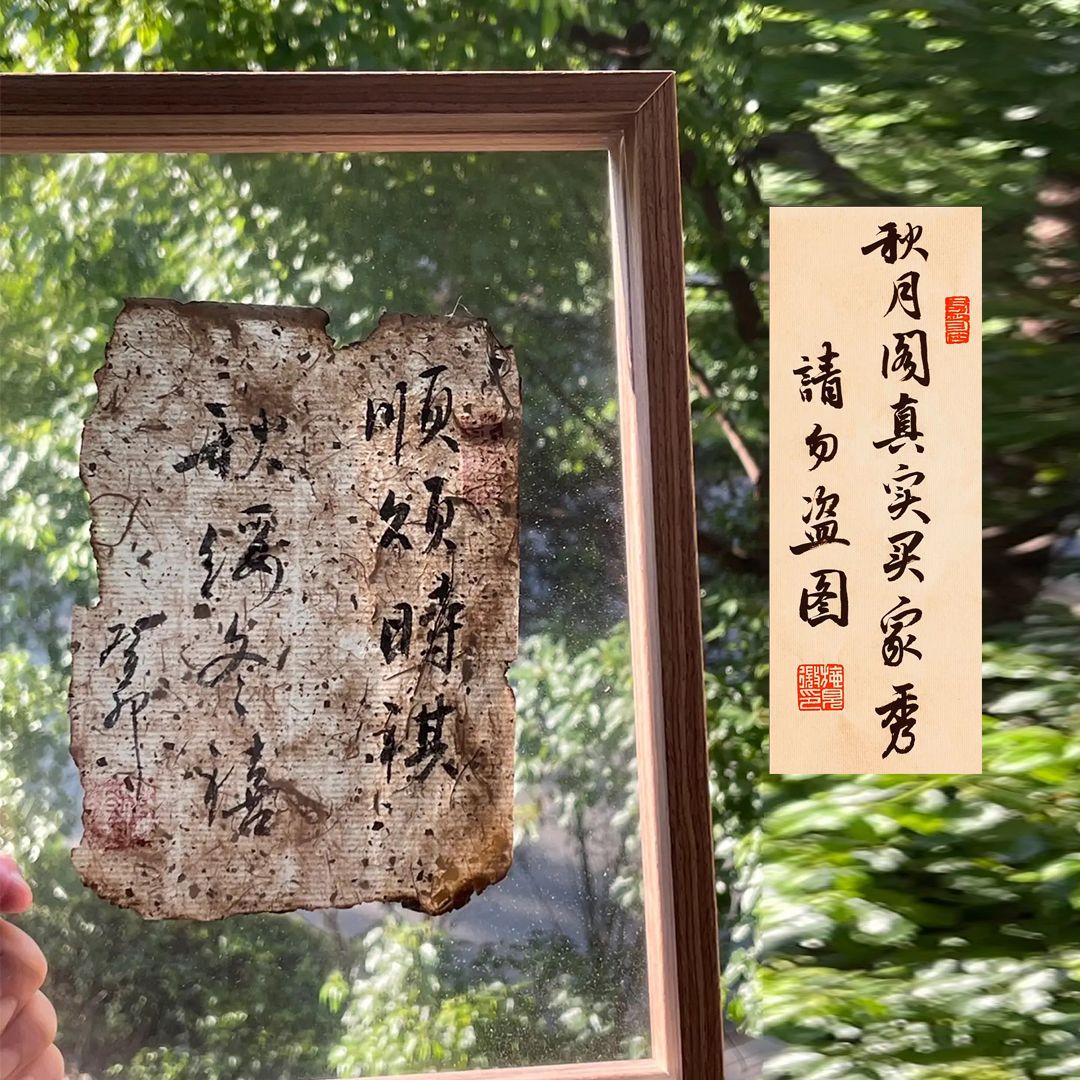 順頌時祺
秋綏冬禧
癸卯
秋月阁真实买家秀
請勿盗图